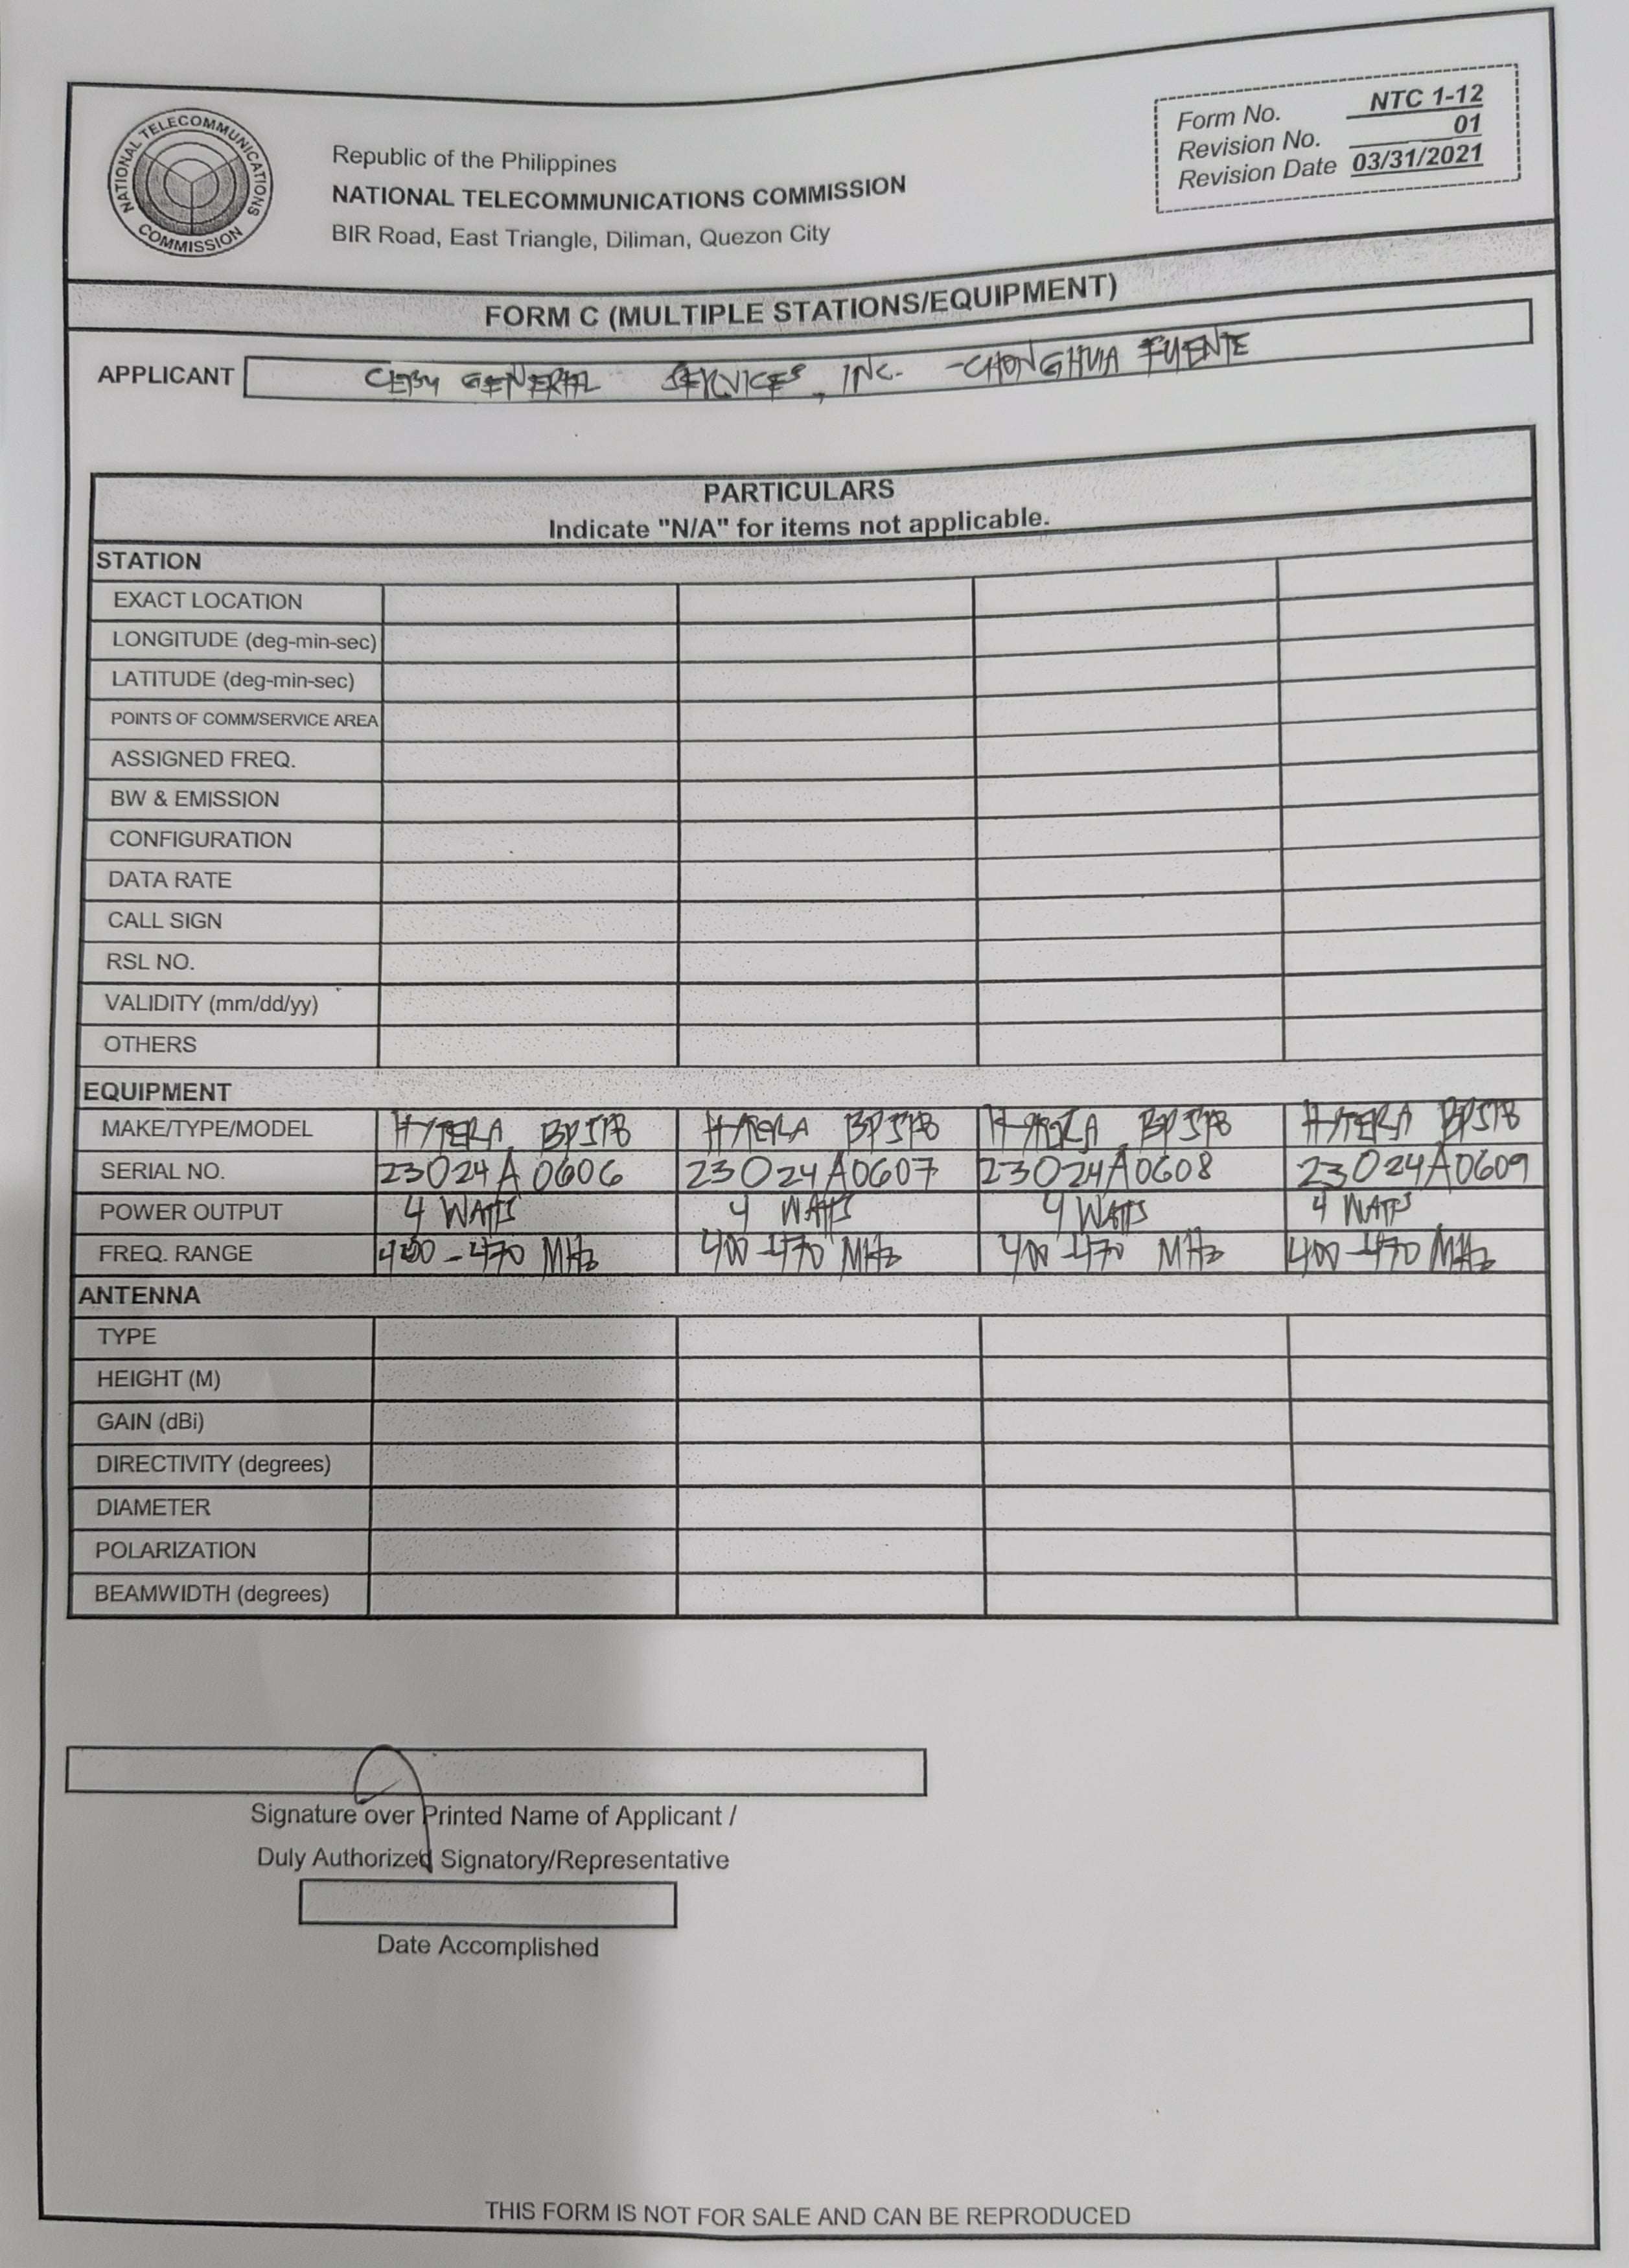 NATIONAL TELECOMMUNICATIONS COMMISSION
Republic of the Philippines
NATIONAL TELECOMMUNICATIONS COMMISSION
BIR Road, East Triangle, Diliman, Quezon City
Form No. NTC 1-12
Revision No. 01
Revision Date 03/31/2021
FORM C (MULTIPLE STATIONS/EQUIPMENT)
APPLICANT CEBU GENERAL SERVICES, INC. -CHONGHUA FUENTE
PARTICULARS
Indicate "N/A" for items not applicable.
STATION
EXACT LOCATION
LONGITUDE (deg-min-sec)
LATITUDE (deg-min-sec)
POINTS OF COMM/SERVICE AREA
ASSIGNED FREQ.
BW & EMISSION
CONFIGURATION
DATA RATE
CALL SIGN
RSL NO.
VALIDITY (mm/dd/yy)
OTHERS
EQUIPMENT
MAKE/TYPE/MODEL HYTERA HYTERA HYTERA HYTERA
SERIAL NO. 23024A0606 23024A0607 23024A0608 23024A0609
POWER OUTPUT 4 WATTS 4 WATTS 4 WATTS 4 WATTS
FREQ. RANGE 400-470 MHz 400-470 MHz 400-470 MHz 400-470 MHz
ANTENNA
TYPE
HEIGHT (M)
GAIN (dBi)
DIRECTIVITY (degrees)
DIAMETER
POLARIZATION
BEAMWIDTH (degrees)
Signature over Printed Name of Applicant /
Duly Authorized Signatory/Representative
Date Accomplished
THIS FORM IS NOT FOR SALE AND CAN BE REPRODUCED